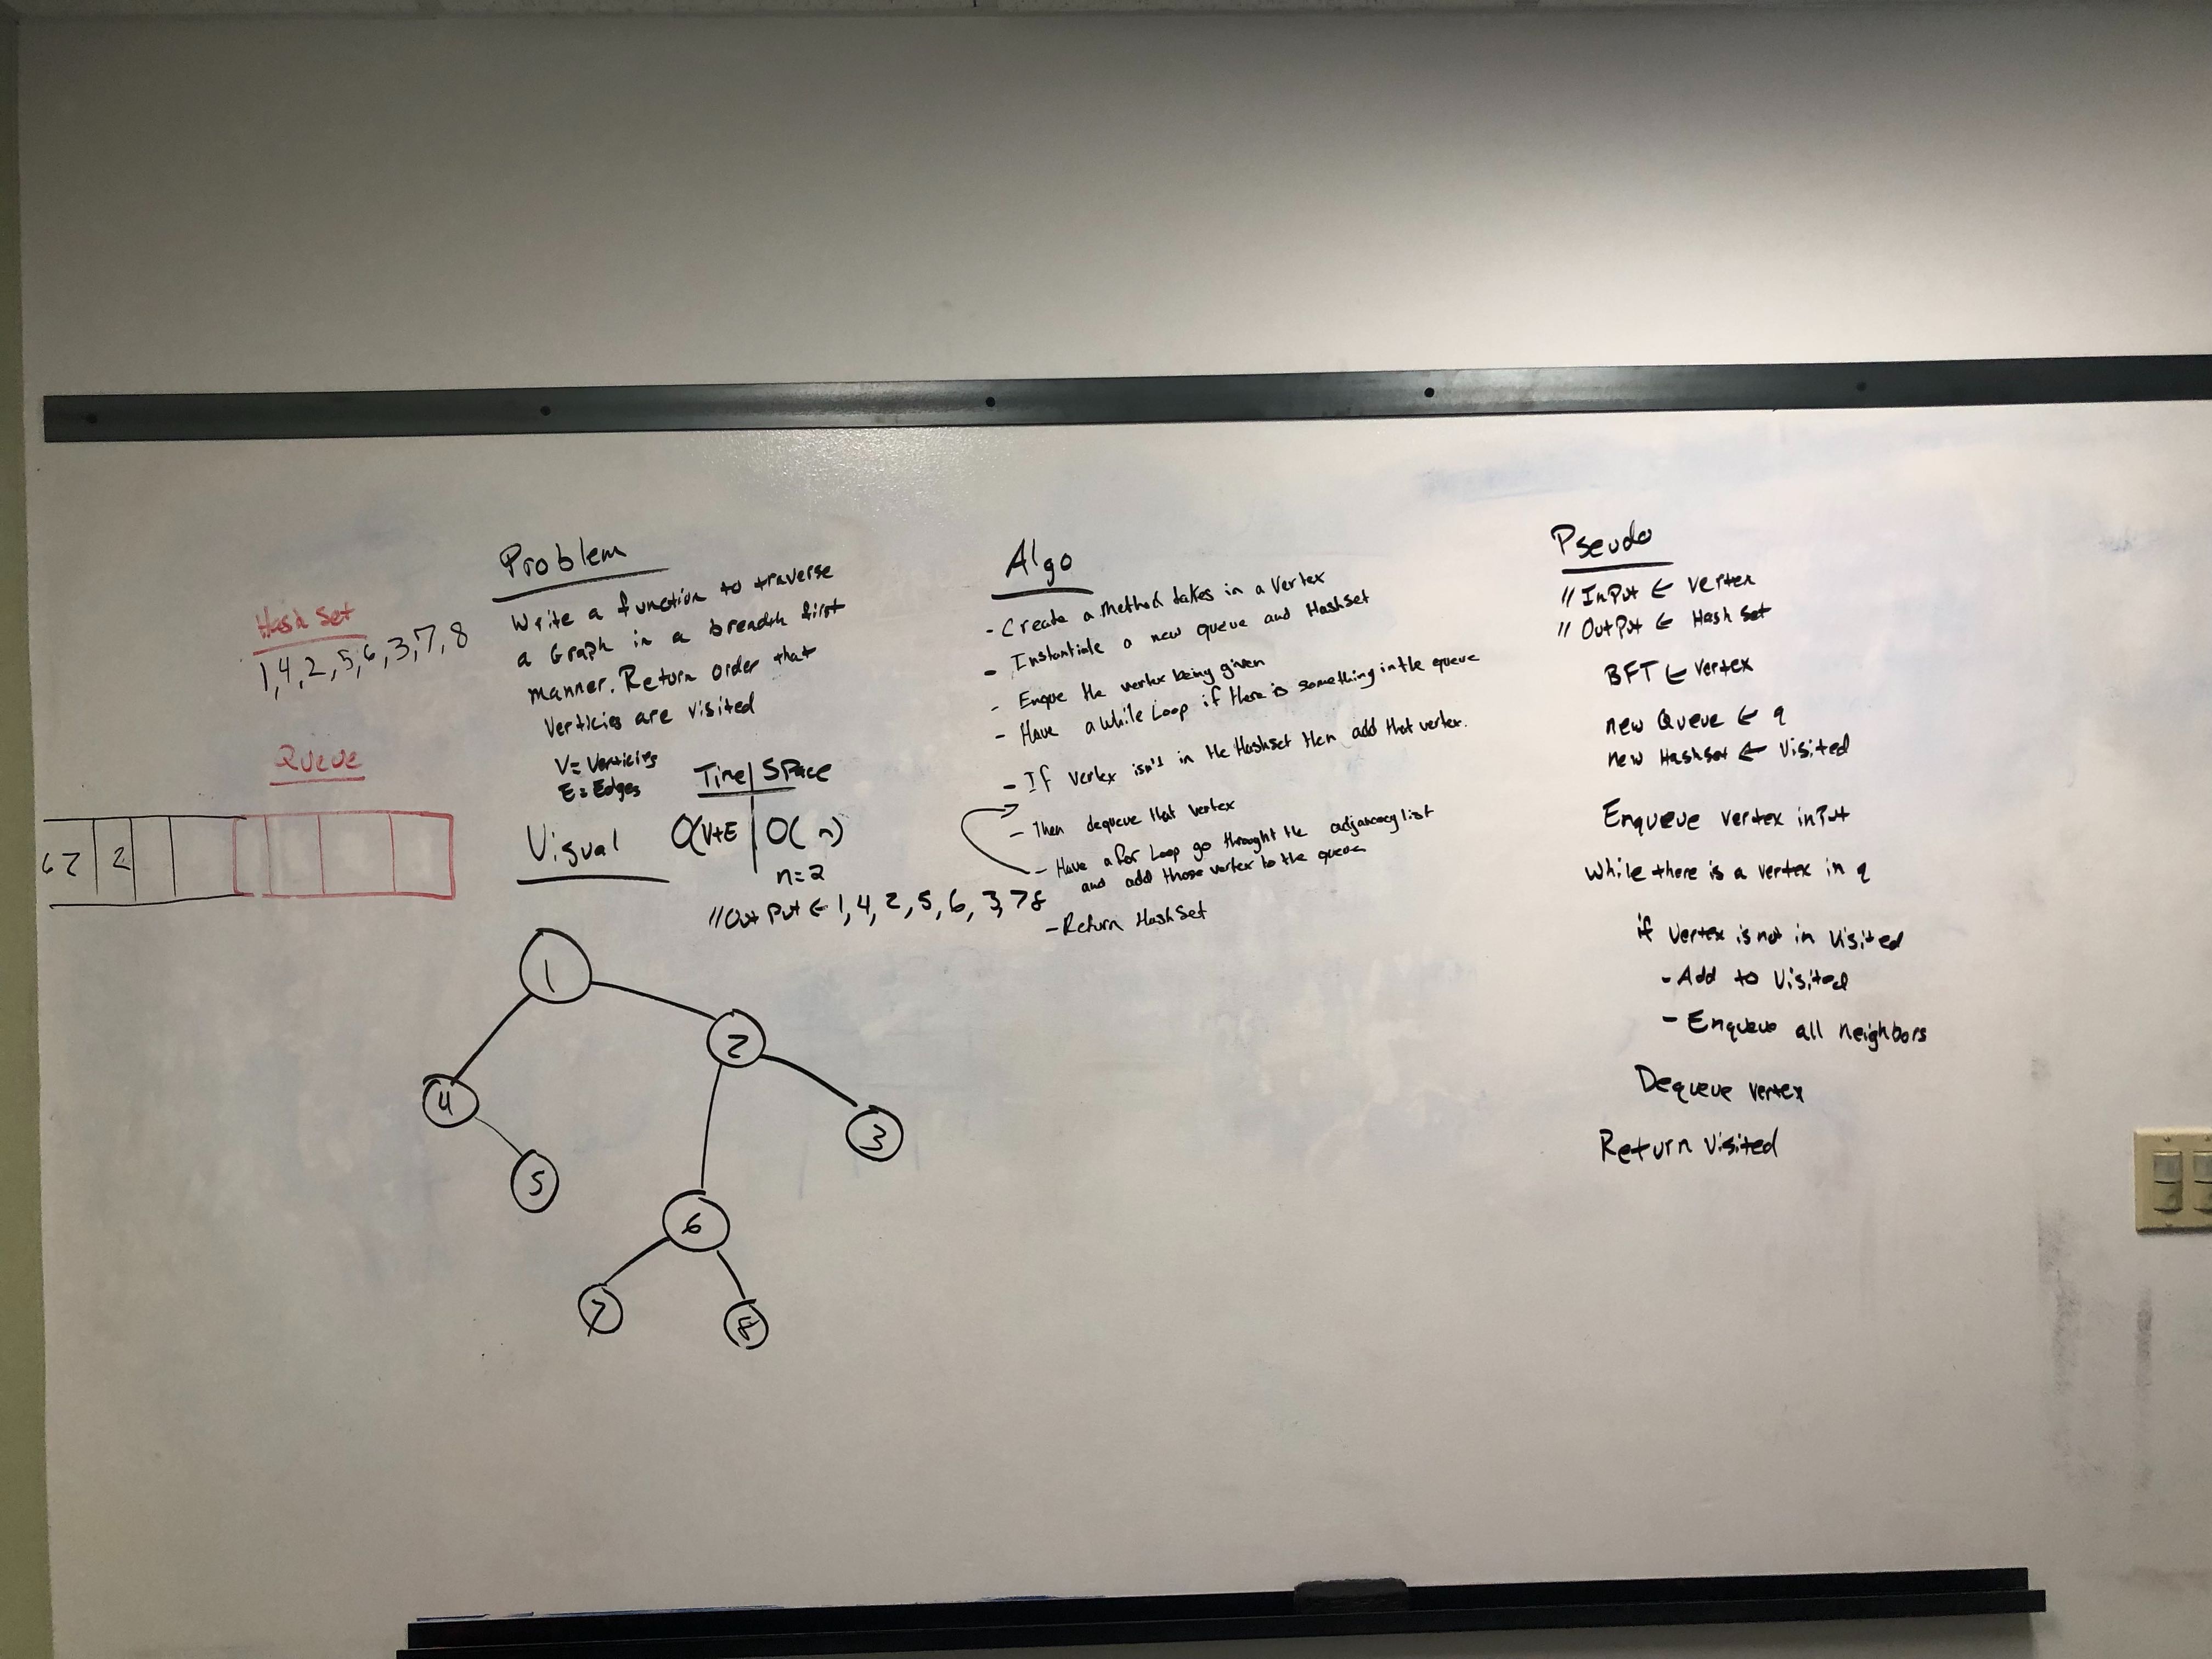 Hash Set
1,4,2,5,6,3,7,8
Queue
2
Problem
Write a function to traverse
a Graph in a breadth first
manner. Return order that
Verticies are visited
V= Verticies
E= Edges
Time | Space
O(V+E | O( n)
n=2
Visual
//OutPut ← 1, 4, 2, 5, 6, 3, 7 8
1
2
4
3
5
6
7
8
Algo
- Create a Method takes in a Vertex
- Instantiate a new queue and HashSet
- Enque the vertex being given
- Have a while Loop if there is something in the queue
- If vertex isn't in the Hashset then add that vertex.
- Then dequeue that vertex
- Have a for Loop go throught the adjancecy list
and add those vertex to the queue
- Return HashSet
Pseudo
// InPut ← Vertex
// OutPut ← Hash Set
BFT ← Vertex
new Queue ← q
new Hashset ← Visited
Enqueue vertex inPut
While there is a vertex in q
if vertex is not in Visited
- Add to Visited
- Enqueue all neighbors
Dequeue vertex
Return Visited